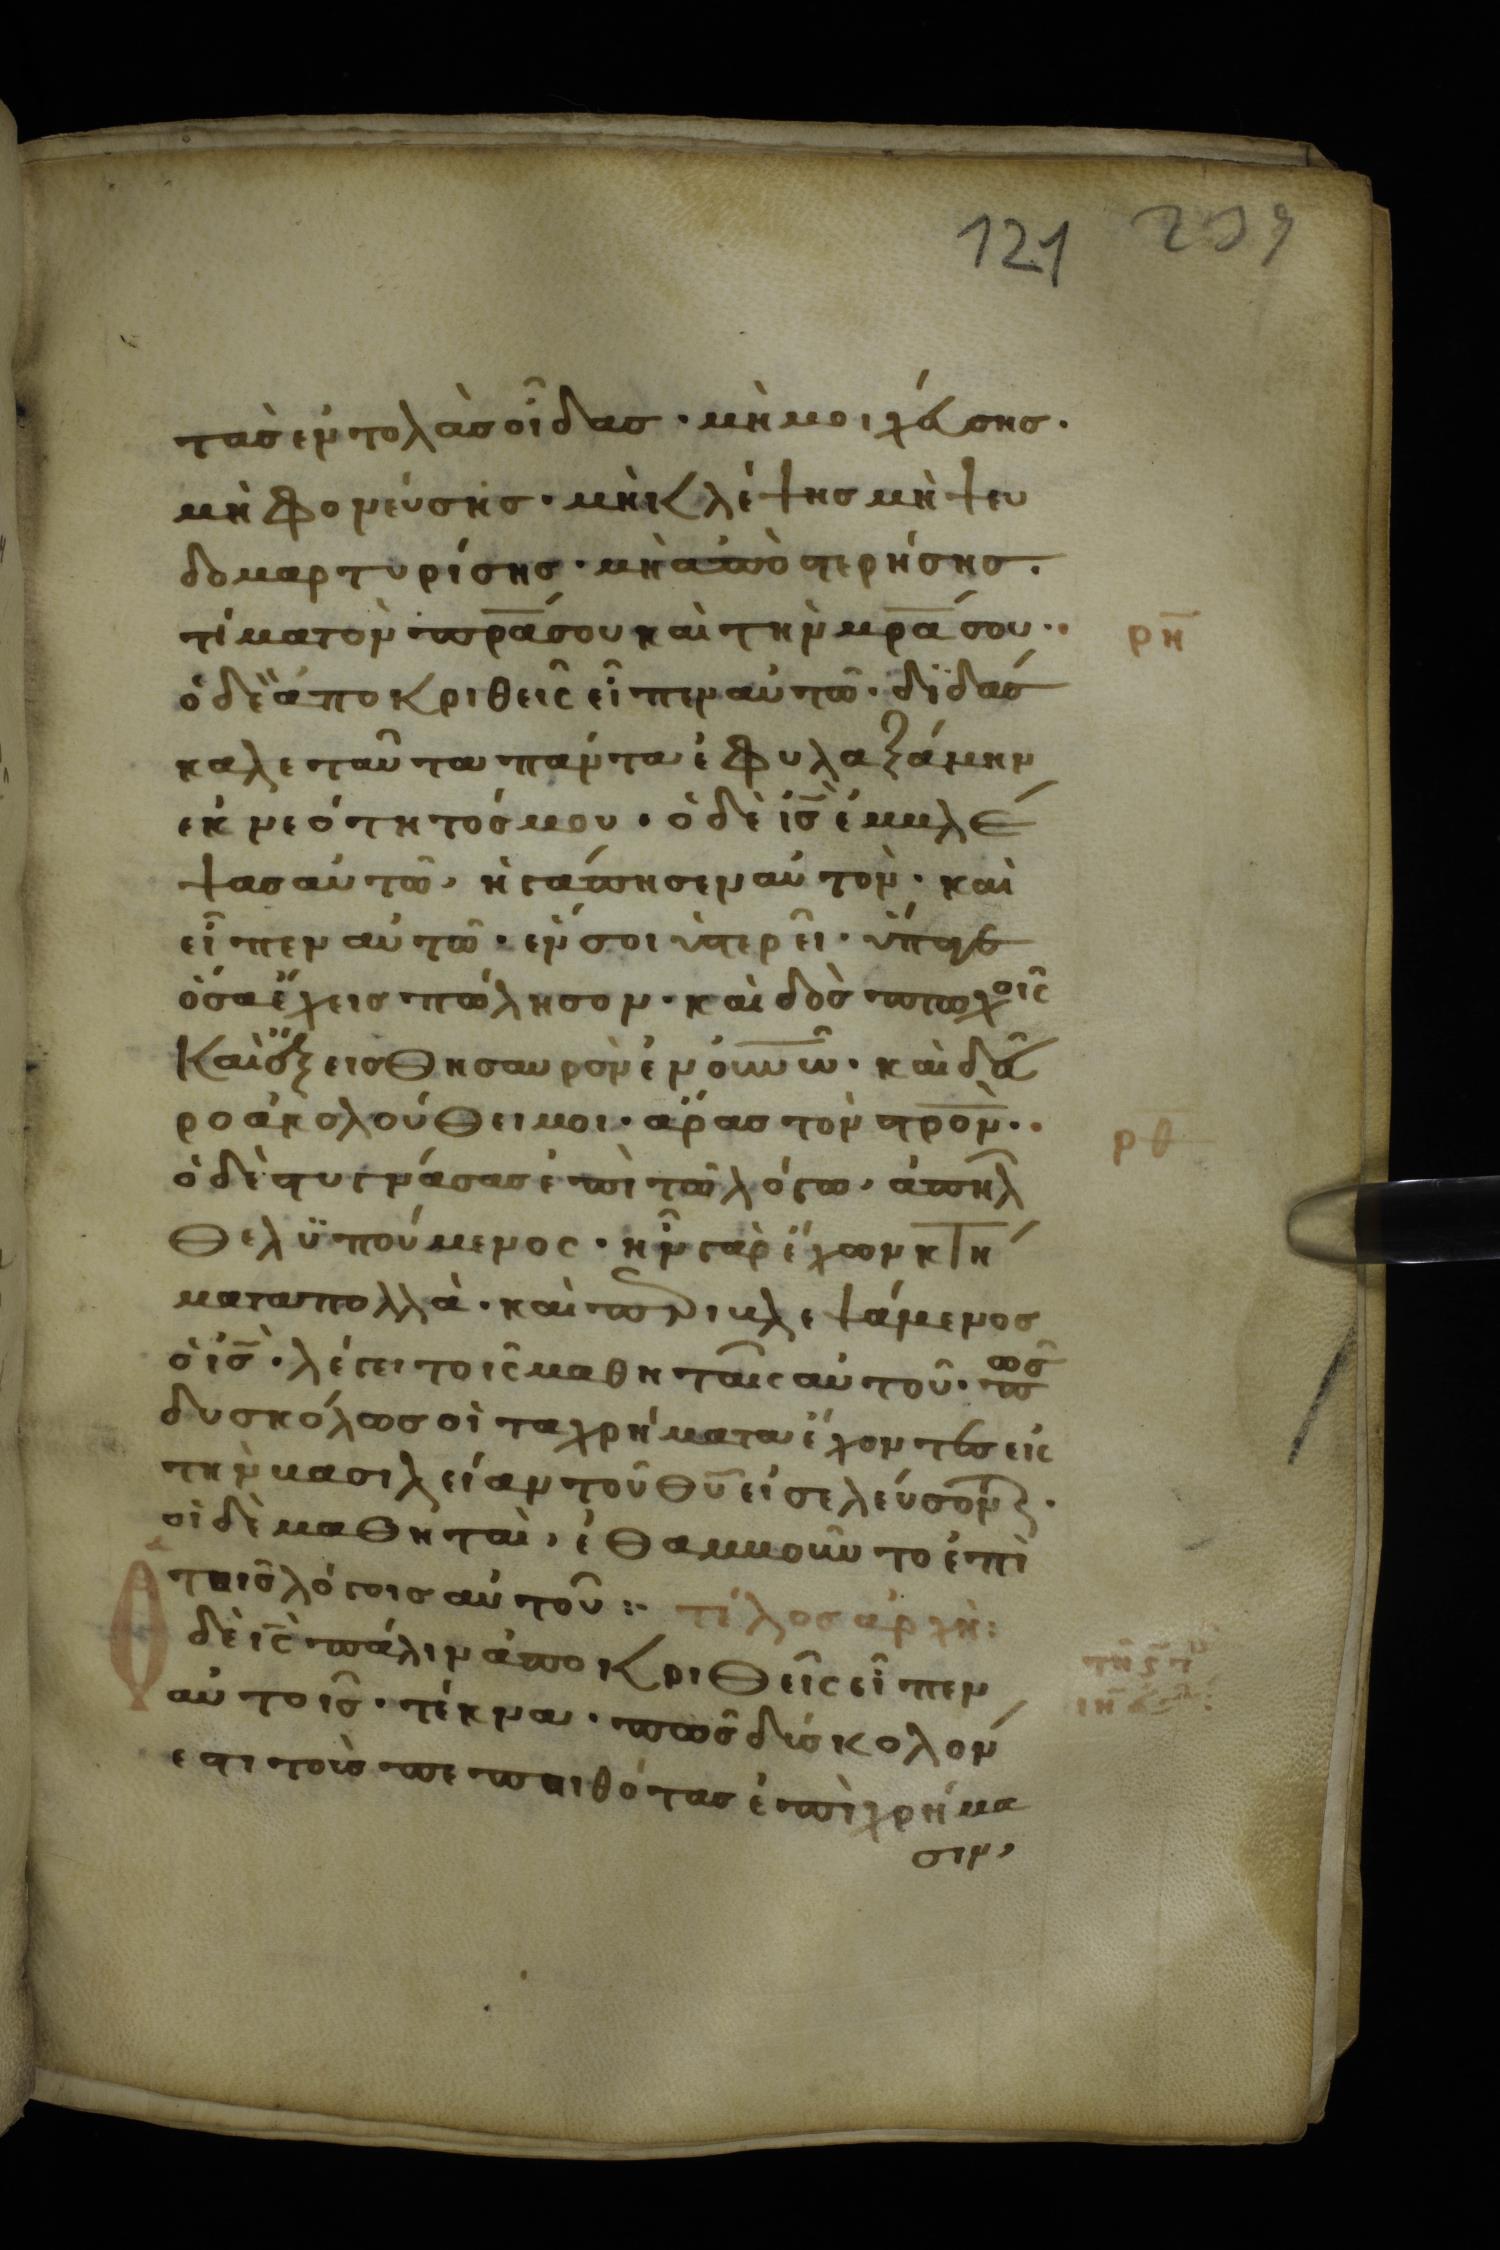 121 239
τὰσ ἐντολὰσ οἶδασ · μὴ μοιχεύσησ ·
μὴ φονεύσησ · μὴ κλέψησ μὴ ψευ
δομαρτυρίσησ · μὴ ἀποστερήσησ ·
τίμα τὸν πρ̅ά σου καὶ τὴν μρ̅ά σου ·· ρη̅
ὁ δὲ ἀποκριθεὶς εἶπεν αὐτῶ · διδάσ
καλε ταῦτα πάντα ἐφυλαξάμην
εκ νεότητόσ μου · ὁ δὲ ἰσ̅ ἐμβλέ
ψασ αὐτῶ, ἠγάπησεν αὐτὸν · καὶ
εἶπεν αὐτῶ · ἕν σοι ὑστερεῖ · ὕπαγε
ὅσα ἔχεισ πώλησον · καὶ δὸσ πτωχοῖς
Καὶ ἕξεισ θησαυρὸν ἐν ὀυν̅ω̅ · καὶ δεῦ
ρο ἀκολούθει μοι · ἄρασ τὸν στρ̅ο̅ν̅ ·· ρθ
ὁ δὲ στυγνάσασ ἐπὶ τῶ λόγω, ἀπῆλ
θε λϋπούμενος · ἦν γὰρ ἔχων κτή
ματα πολλὰ · καὶ περιβλεψάμενοσ
ὁ ἰσ̅ · λέγει τοῖς μαθηταῖς αὐτοῦ · πῶσ
δυσκόλωσ οἱ τα χρήματα ἔχοντεσ εἰς
τὴν βασιλείαν τοῦ θυ̅ εἰσελεύσοντ(αι) ·
οἱ δὲ μαθηταὶ, ἐθαμβοῦντο ἐπὶ
τοῖσ λόγοισ αὐτοῦ :· τέλοσ ἀρχὴ :
Ὁ δὲ ις̅ πάλιν ἀποκριθεὶς εἶπεν
αὐτοῖσ · τέκνα · πῶσ δύσκολόν
εστι τοὺσ πεποιθότασ ἐπὶ χρήμα
σιν,